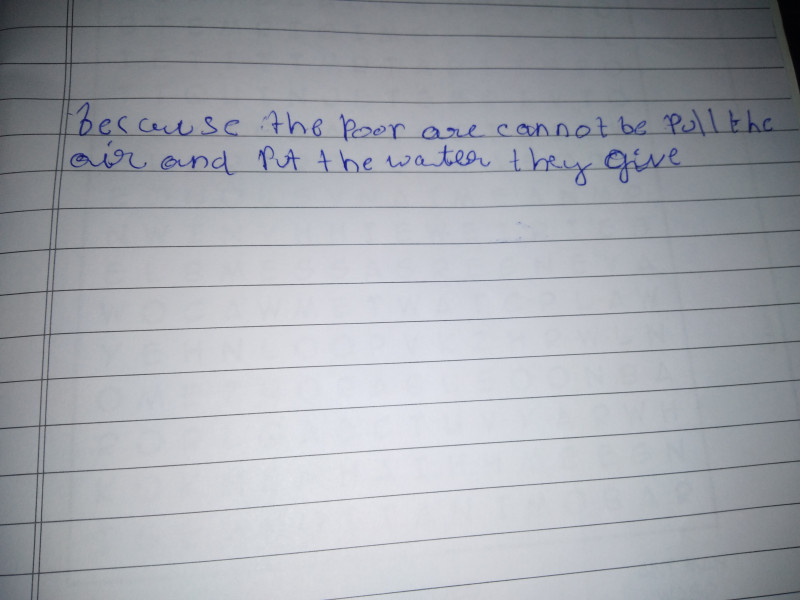 because the poor are cannot be pull the
air and put the water they give